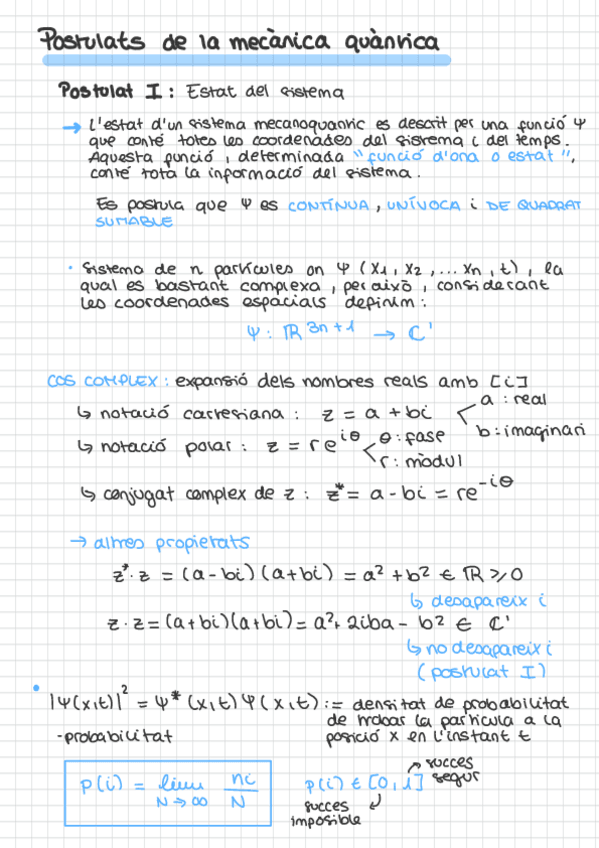 Postulats de la mecànica quàntica
Postulat I: Estat del sistema
→ L'estat d'un sistema mecanoquàntic es descrit per una funció Ψ
que conté totes les coordenades del sistema i del temps.
Aquesta funció, determinada "funció d'ona o estat",
conté tota la informació del sistema.
Es postula que Ψ es CONTÍNUA, UNÍVOCA i DE QUADRAT
SUMABLE
· Sistema de n partícules on Ψ (x₁, x₂, ... xₙ, t), la
qual es bastant complexa, per això, considerant
les coordenades espacials definim:
Ψ: ℝ³ⁿ⁺¹ → ℂ'
COS COMPLEX: expansió dels nombres reals amb [i]
↳ notació cartesiana: z = a + bi < a: real
b: imaginari
↳ notació polar: z = re^{iθ} < θ: fase
r: mòdul
↳ conjugat complex de z: z* = a - bi = re^{-iθ}
→ altres propietats
z*·z = (a-bi)(a+bi) = a² + b² ∈ ℝ ⩾ 0
↳ desapareix i
z·z = (a+bi)(a+bi) = a² + 2iba - b² ∈ ℂ'
↳ no desapareix i
(postulat I)
• |Ψ(x,t)|² = Ψ*(x,t)Ψ(x,t) := densitat de probabilitat
de trobar la partícula a la
posició x en l'instant t
-probabilitat
p(i) = lim_{N→∞} ni/N
p(i) ∈ [0,1]
succes
segur
succes
imposible